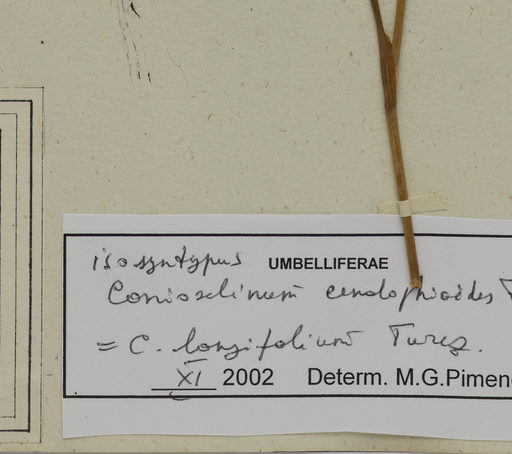 isosyntypus UMBELLIFERAE
Conioselinum cendophioides T
= C. longifolium Turcz.
XI 2002 Determ. M.G.Pimen